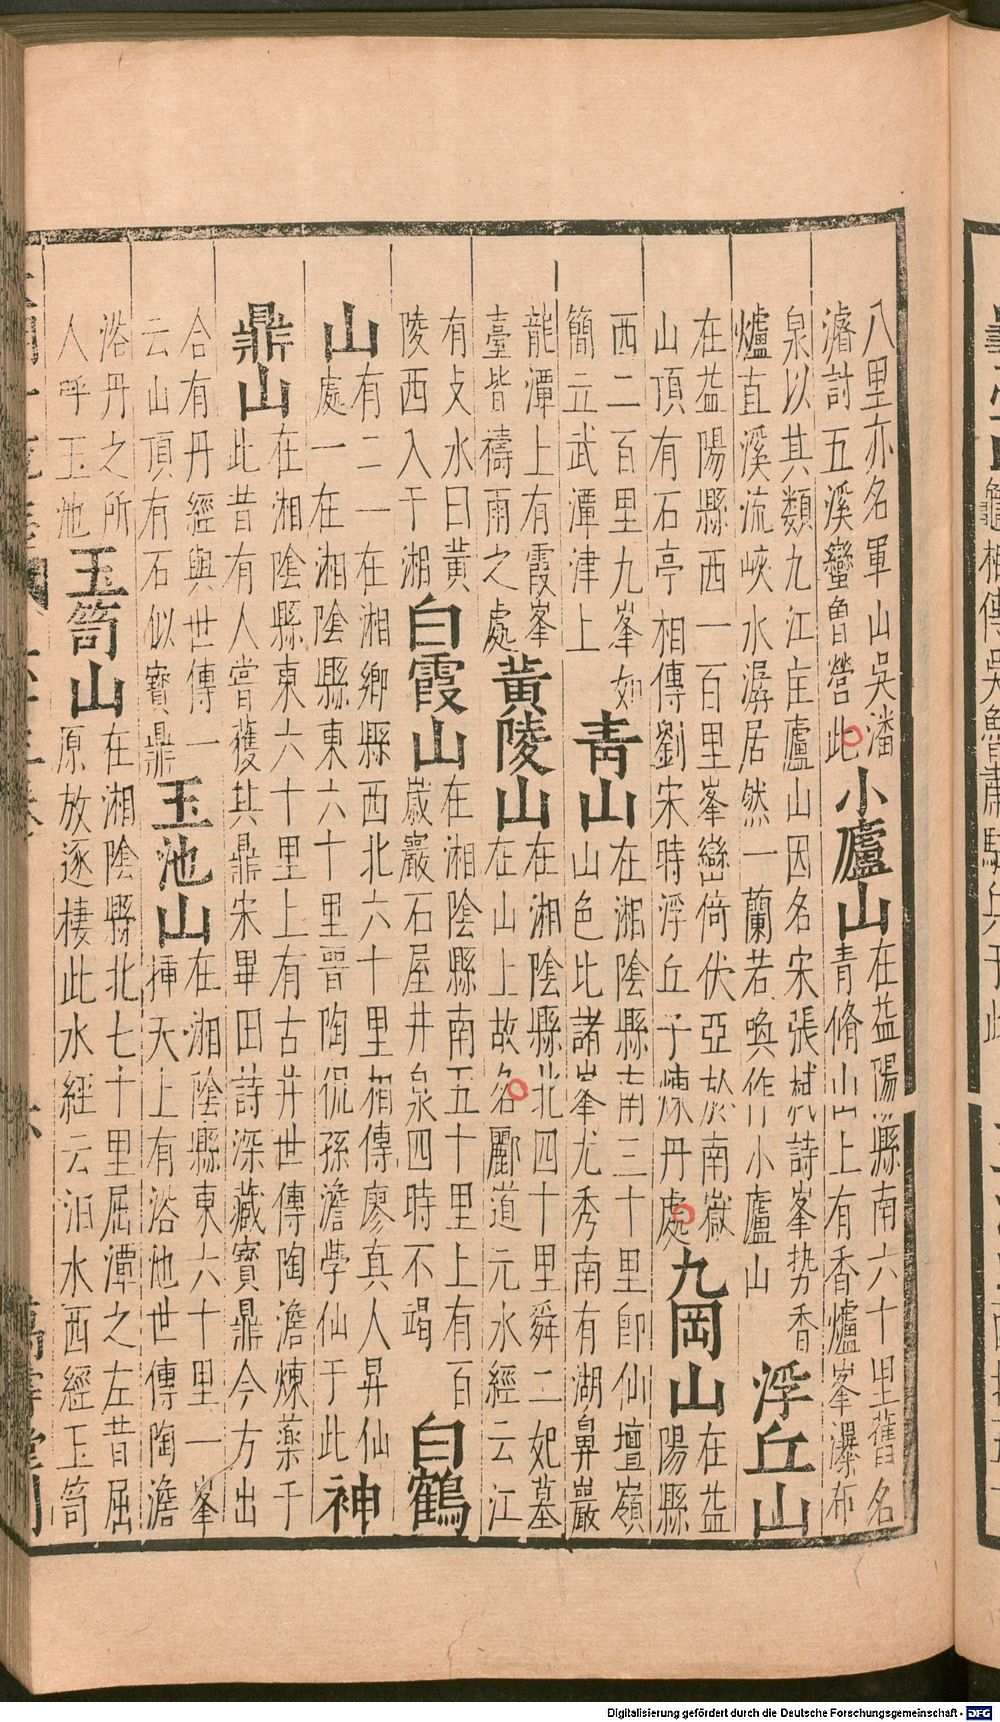 相傳吳魯肅駐兵于此
八里亦名軍山吳潘
濬討五溪蠻魯營此
小廬山
在益陽縣南六十里舊名
青脩山山上有香爐峯瀑布
泉以其類九江匡廬山因名宋張栻詩峯勢香
爐直溪流峽水潺居然一蘭若喚作小廬山
浮丘山
在益陽縣西一百里峯巒倚伏亞於南嶽
山頂有石亭相傳劉宋時浮丘子煉丹處
九岡山
在益
陽縣
西二百里九峯如
簡立武潭津上
青山
在湘陰縣南三十里即仙壇嶺
山色比諸峯尤秀南有湖鼻巖
龍潭上有霞峯
臺皆禱雨之處
黃陵山
在湘陰縣北四十里舜二妃墓
在山上故名酈道元水經云江
有攴水曰黃
陵西入于湘
白霞山
在湘陰縣南五十里上有百
崴巖石屋井泉四時不竭
白鶴
山
有二一在湘鄉縣西北六十里相傳廖真人昇仙
處一在湘陰縣東六十里晉陶侃孫澹學仙于此
神
鼎山
在湘陰縣東六十里上有古井世傳陶澹煉藥于
此昔有人嘗獲其鼎宋畢田詩深藏寶鼎今方出
合有丹經與世傳一
云山頂有石似寶鼎
玉池山
在湘陰縣東六十里一峯
挿天上有浴池世傳陶澹
浴丹之所
人呼玉池
玉笥山
在湘陰縣北七十里屈潭之左昔屈
原放逐棲此水經云汨水西經玉笥
萬壽堂刊
Digitalisierung gefördert durch die Deutsche Forschungsgemeinschaft - DFG